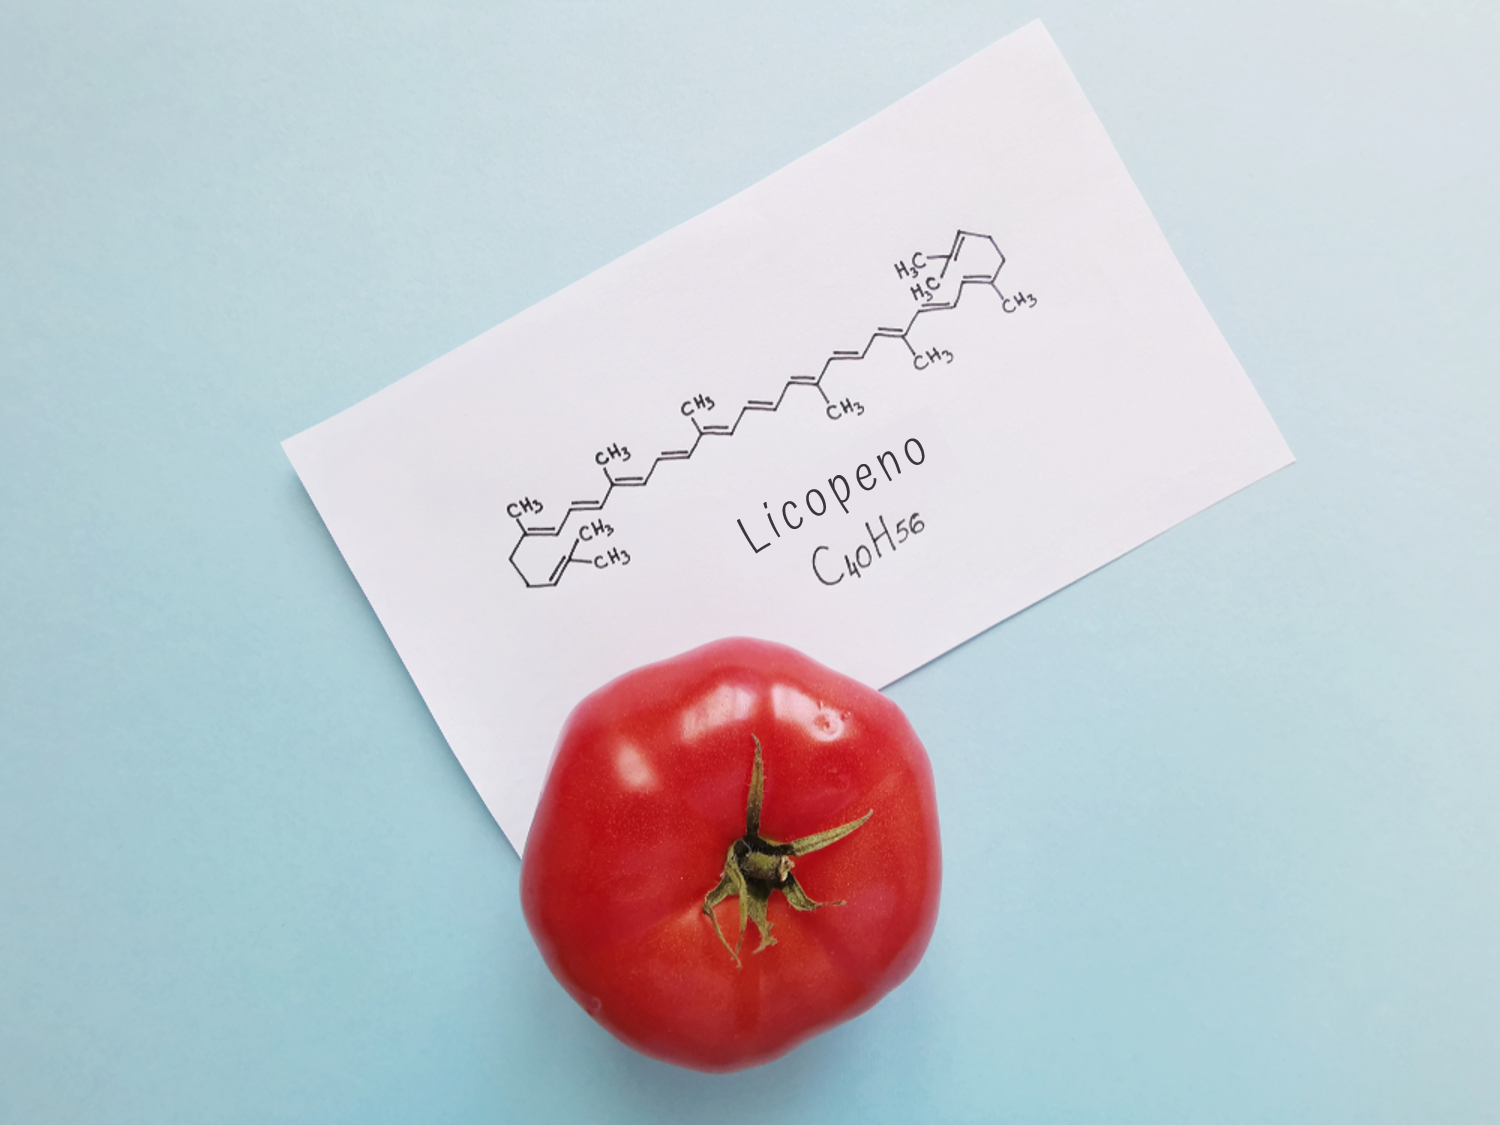 H₃C
H₃C
CH₃
CH₃
CH₃
CH₃
CH₃
CH₃
CH₃
CH₃
Licopeno
C₄₀H₅₆